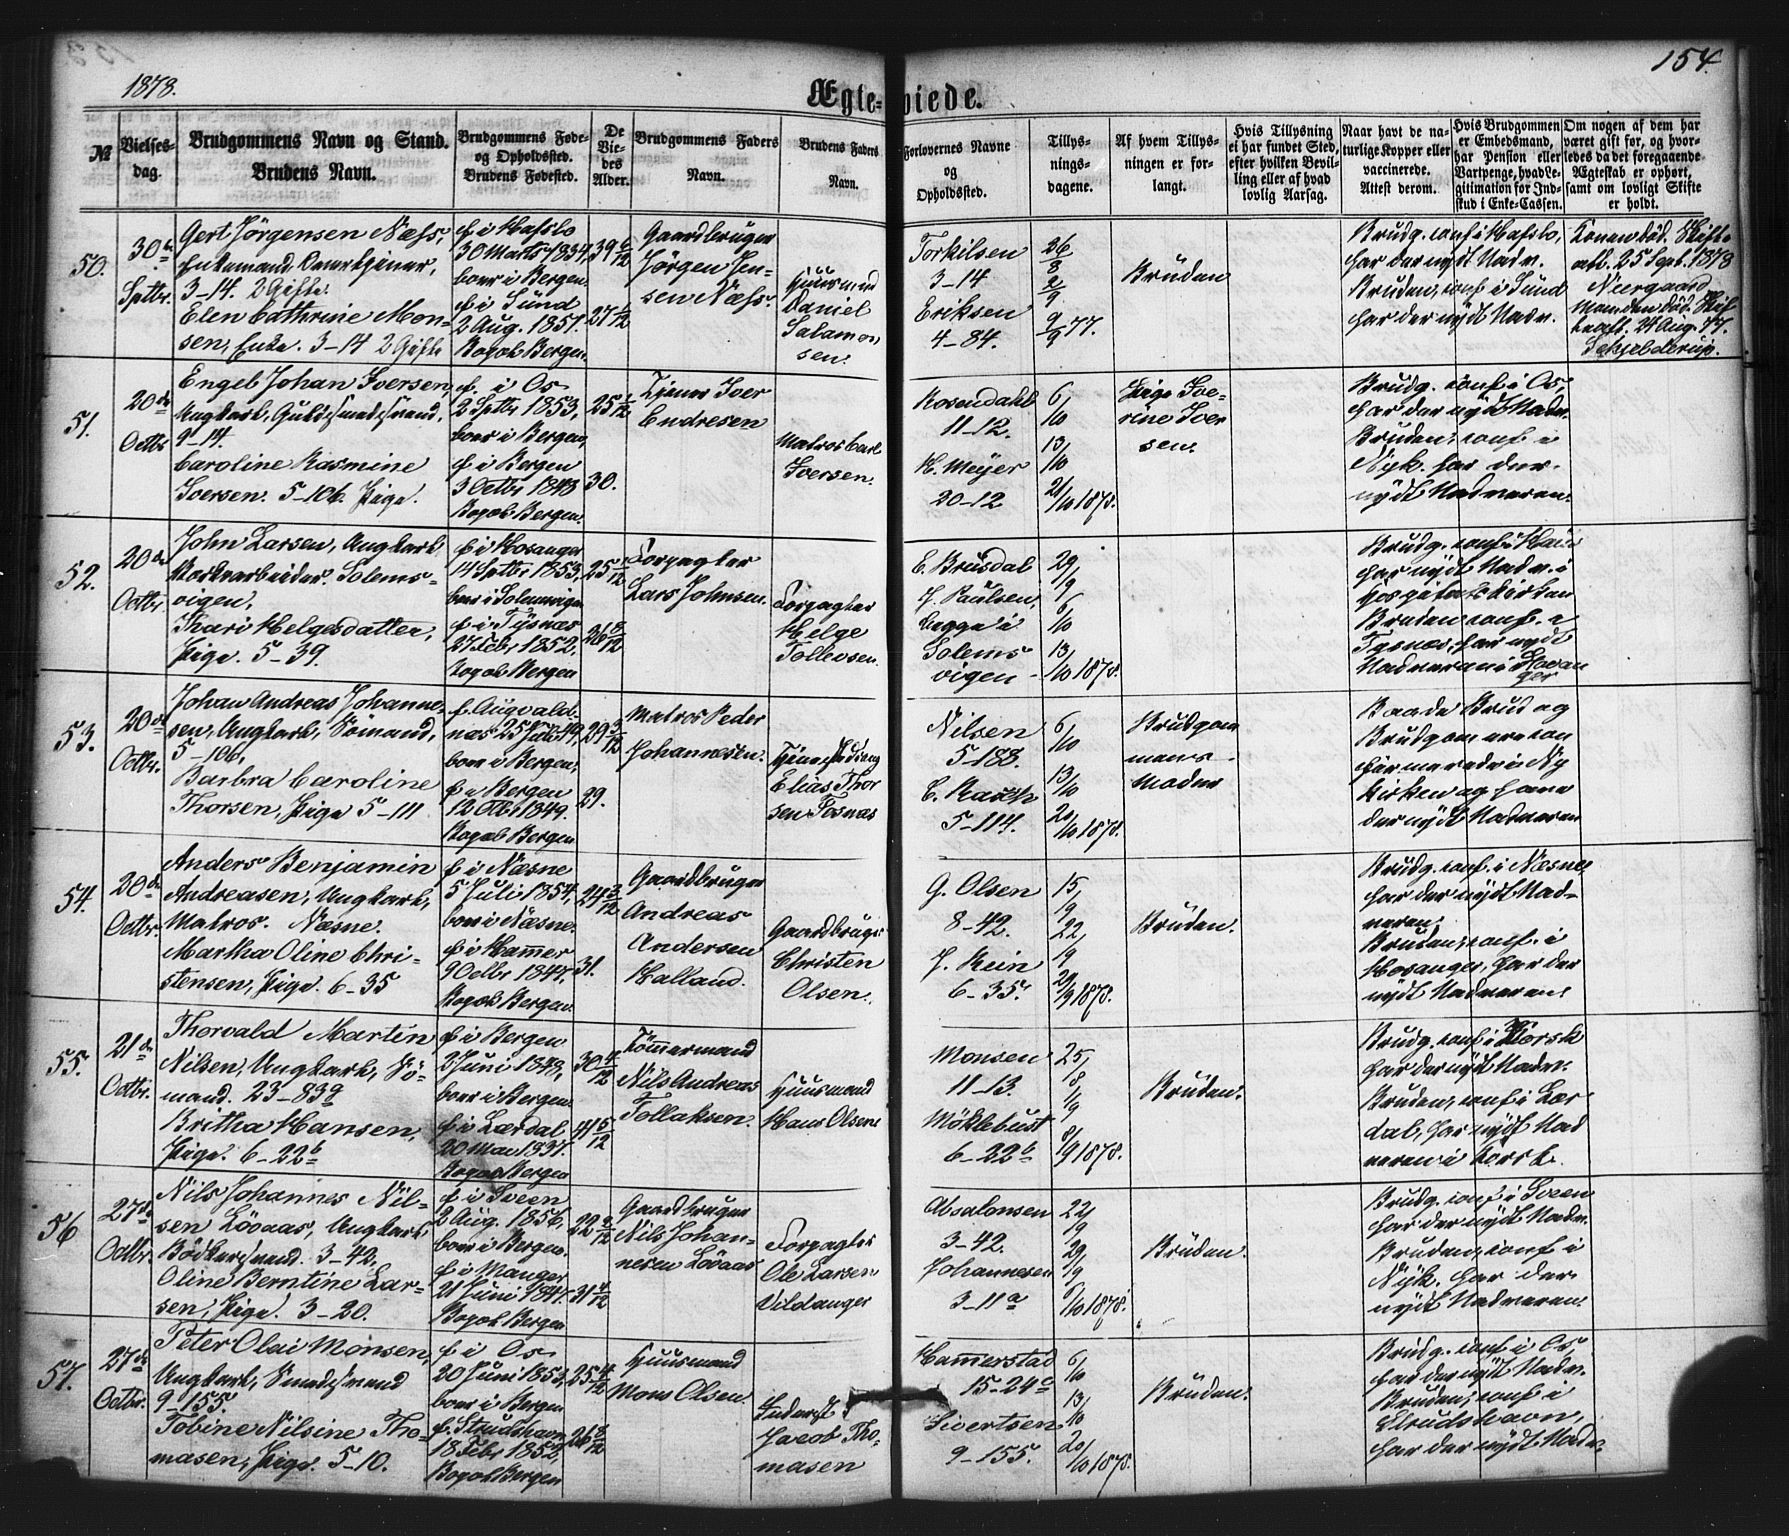 1878.
Ægte-viede.
154.
№
Vielses-
dag.
Brudgommens Navn og Stand.
Brudens Navn.
Brudgommens Føde-
og Opholdssted.
Brudens Fødested.
De
Vie-
des
Alder.
Brudgommens Faders
Navn.
Brudens Faders
Navn.
Forlovernes Navne
og
Opholdssted.
Tillys-
nings-
dagene.
Af hvem Tillys-
ningen er for-
langt.
Hvis Tillysning
ei har fundet Sted,
efter hvilken Bevil-
ling eller af hvad
lovlig Aarsag.
Naar havt de na-
turlige Kopper eller
vaccinerede.
Attest derom.
Hvis Brudgommen
er Embedsmand,
har Pension eller
Vartpenge, hvad Le-
gitimation for Ind-
skud i Enke-Cassen.
Om nogen af dem har
været gift før, og hvor-
ledes da det foregaaende
Ægteskab er ophørt,
samt om lovligt Skifte
er holdt.
50.
30te
Septbr.
Gert Jørgensen Næss,
Enkemand,
3-14. 2 Gifte
Elen Cathrine Mon-
sen, Enke. 3-14 2 Gifte
f. i Hafslo
30 Marts 1834,
boer i Bergen.
f. i Sund
2 Aug. 1851.
Bopæl Bergen.
39 6/12
27 1/12
Gaardbruger
Jørgen Jen-
sen Næss.
Huusmand
Daniel
Salamon
sen.
Torkilsen
3-14
Eriksen
4-84.
26/8
2/9
9/9 77.
Bruden
Brudg. conf. i Hafslo,
har der nydt Nadv.
Bruden, conf. i Sund
har der nydt Nadv.
Konen død. Skifte
att. 25 Sept. 1878
Neergaard
Manden død. Skif
teatt. 24 Aug. 77.
51.
20de
Octbr
Engel Johan Iversen,
Ungkarl, Guldsmedsvend.
9-14.
Caroline Rasmine
Iversen. 5-106. Pige.
f. i Os
2 Septbr 1853,
boer i Bergen,
f. i Bergen
3 Octbr 1848
Bopæl Bergen.
25 1/12
30.
Tjener Iver
Endresen
Matros Carl
Iversen.
Rosendahl
11-12.
H. Meyer
20-12
6/10
13/10
21/10 1878.
Pige Ive-
rine Iver
sen.
Brudg. conf. i Os,
har der nydt Nadv.
Bruden, conf. i
Nyk. har der
nydt Nadveren.
52.
20de
Octbr.
John Larsen, Ungkarl
Værkarbeider. Solems-
vigen,
Thari Helgesdatter,
Pige. 5-39.
f. i Hosanger
14 Septbr 1853,
boer i Solemsvigen
f. i Tysnæs
27 Febr 1852.
Bopæl Bergen
25 1/12
26 8/12
Forpagter
Lars Johnsen.
Forpagter
Helge
Tollevsen.
E. Brusdal
J. Paulsen,
begge i
Solems
vigen
29/9
6/10
13/10 1878.
Brudg. conf. i Haus
har nydt Nadv. i
Hospitalskirken
Bruden conf. i
Tysnæs, har nydt
Nadveren i Hosan
ger
53.
20de
Octbr.
Johan Andreas Johanne-
sen, Ungkarl, Sømand,
5-106,
Barbra Caroline
Thorsen, Pige 5-111
f. Augvald-
næs 25 49,
boer i Bergen,
f. i Bergen
12 Octbr 1849.
Bopæl Bergen
29 3/12
29.
Matros Peder
Johannesen.
Elias Thor
sen Fosnæs
Nilsen
5-188.
C. Rasch
5-114.
6/10
13/10
20/10 1878.
Brudgom
mens
Moder
Baade Brud og
Brudgom ere con
firmerede i Ny
Kirken og have
der nydt Nadveren
54.
20de
Octbr.
Anders Benjamin
Andreasen, Ungkarl,
Matros. Næsne.
Martha Oline Chri-
stensen, Pige. 6-35
f. i Næsne
5 Juli 1854,
boer i Næsne.
f. i Hammer
9 Octbr 1847,
Bopæl Bergen.
24 3/12
31.
Gaardbruger
Andreas
Andersen
Halland.
Gaardbruger
Christen
Olsen.
G. Olsen
8-42.
J. Rein
6-35.
15/9
22/9
29/9 1878.
Bruden.
Brudg. conf. i Næsne
har der nydt Nad-
veren.
Bruden, conf. i
Hosanger, har der
nydt Nadveren.
55.
21de
Octbr.
Thorvald Martin
Nilsen, Ungkarl, Sø-
mand. 23-83a
Britha Hansen,
Pige. 6-22b
f. i Bergen
2 Juni 1848,
boer i Bergen.
f. i Lærdal
20 Mai 1837.
Bopæl Bergen
30 4/12
41 5/12
Tømmermand
Nils Andreas
Tollaksen.
Huusmand
Hans Olsen
Monsen
11-13.
Møklebust
6-22b
25/8
1/9
8/9 1878.
Bruden.
Brudg. conf. i Korsk
har der nydt Nadv.
Bruden, conf. i Lær
dal, har nydt Nad
veren i Korsk.
56
27de
Octbr.
Nils Johannes Nil-
sen Løvaas, Ungkarl,
Bødkersvend. 3-42,
Oline Berntine Lar-
sen, Pige. 3-20.
f. i Sveen
2 Aug. 1856,
boer i Bergen.
f. i Manger
21 Juni 1847.
Bopæl Bergen
22 2/12
31 4/12
Gaardbruger
Nils Johan-
nesen Løvaas
Forpagter
Ole Larsen
Vildanger
Absalonsen
3-42.
Johannesen
3-11a
22/9
29/9
6/10 1878.
Bruden.
Brudg. conf. i Sveen
har der nydt Nadv.
Bruden, conf. i
Nyk. har der
nydt Nadveren.
57.
27de
Octbr.
Peter Olai Monsen,
Ungkarl, Smedesvend
9-155.
Tobine Nilsine Tho-
masen, Pige. 5-10.
f. i Os
20 Juni 1853,
boer i Bergen
f. Strudshavn
18 Febr 1852,
Bopæl Bergen
25 4/12
26 8/12
Huusmand
Mons Olsen.
Inderst
Jacob Tho-
masen
Hammerstad
15-24c
Sivertsen
9-155.
6/10
13/10
20/10 1878.
Bruden.
Brudg. conf. i Os,
har der nydt Nadv.
Bruden, conf. i
Strudshavn,
har der nydt Nadv.